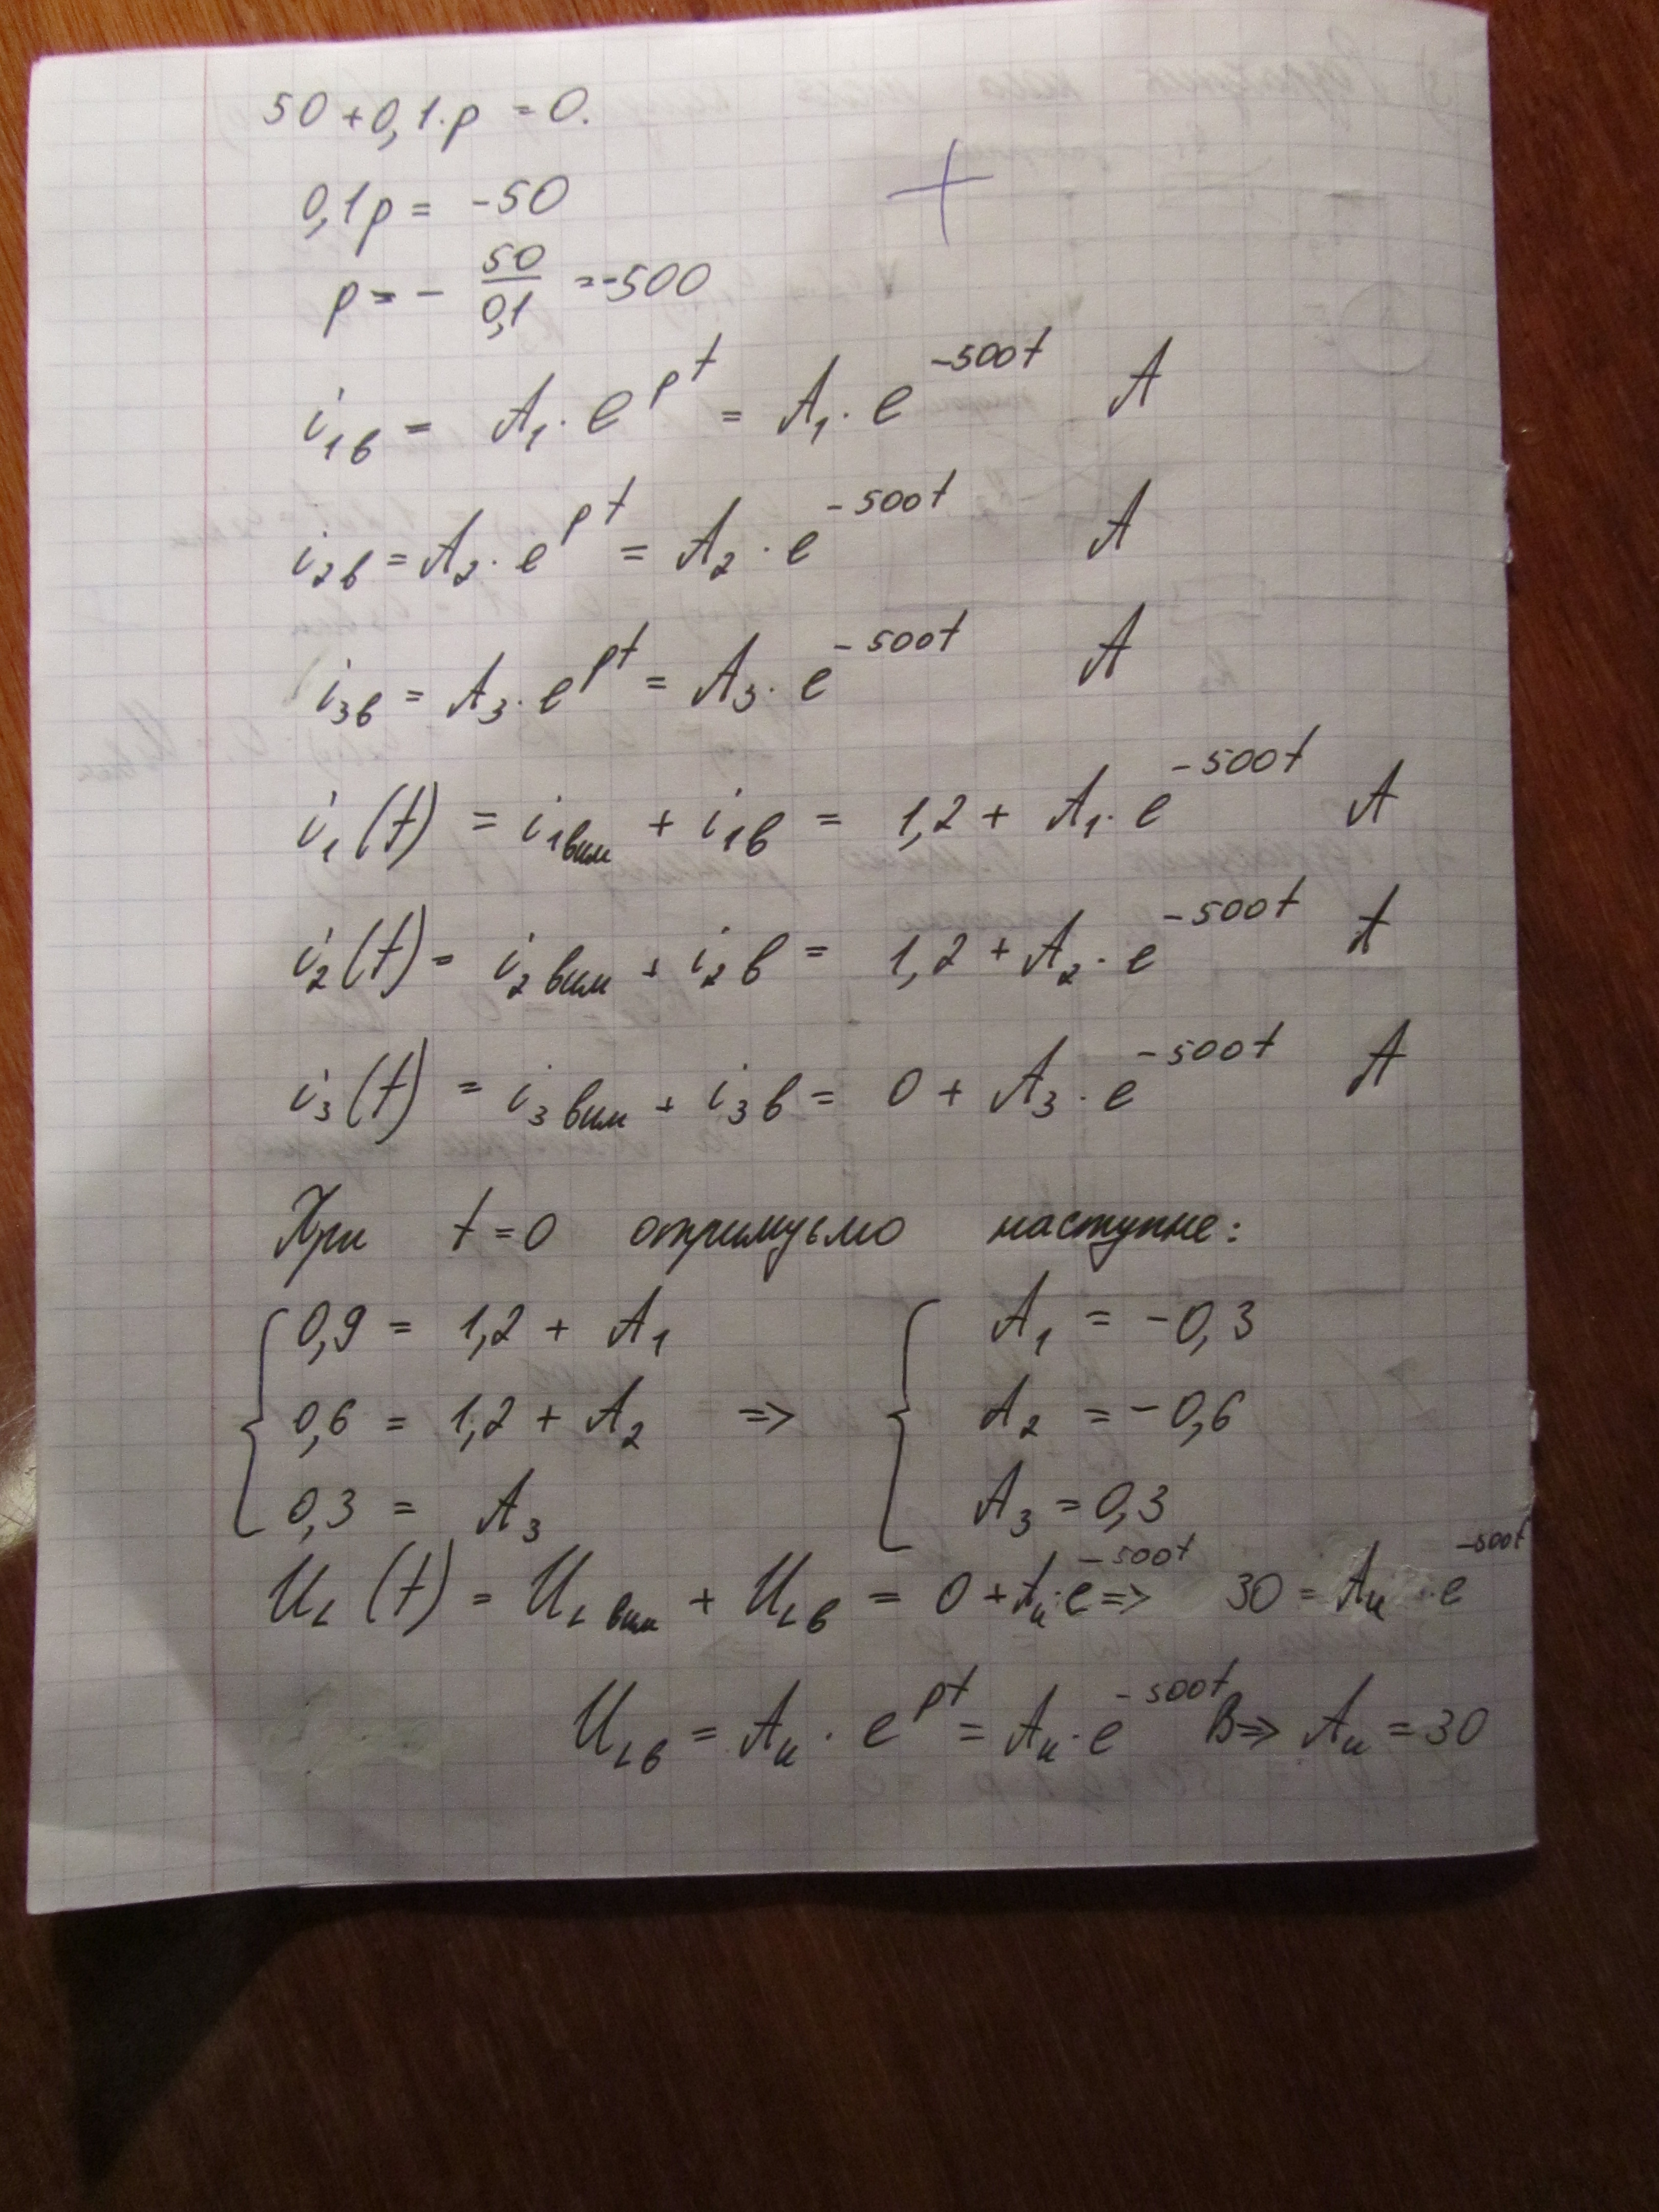 50 + 0,1·p = 0.
0,1p = -50
p = - 50/0,1 = -500
i₁в = A₁·e^pt = A₁·e^-500t A
i₂в = A₂·e^pt = A₂·e^-500t A
i₃в = A₃·e^pt = A₃·e^-500t A
i₁(t) = i₁вим + i₁в = 1,2 + A₁·e^-500t A
i₂(t) = i₂вим + i₂в = 1,2 + A₂·e^-500t A
i₃(t) = i₃вим + i₃в = 0 + A₃·e^-500t A
При t=0 отримуємо наступне:
0,9 = 1,2 + A₁ A₁ = -0,3
0,6 = 1,2 + A₂ => A₂ = -0,6
0,3 = A₃ A₃ = 0,3
U_L(t) = U_Lвим + U_Lв = 0 + Aᵤ·e^-500t => 30 = Aᵤ·e^-500t
U_Lв = Aᵤ·e^pt = Aᵤ·e^-500t В => Aᵤ = 30